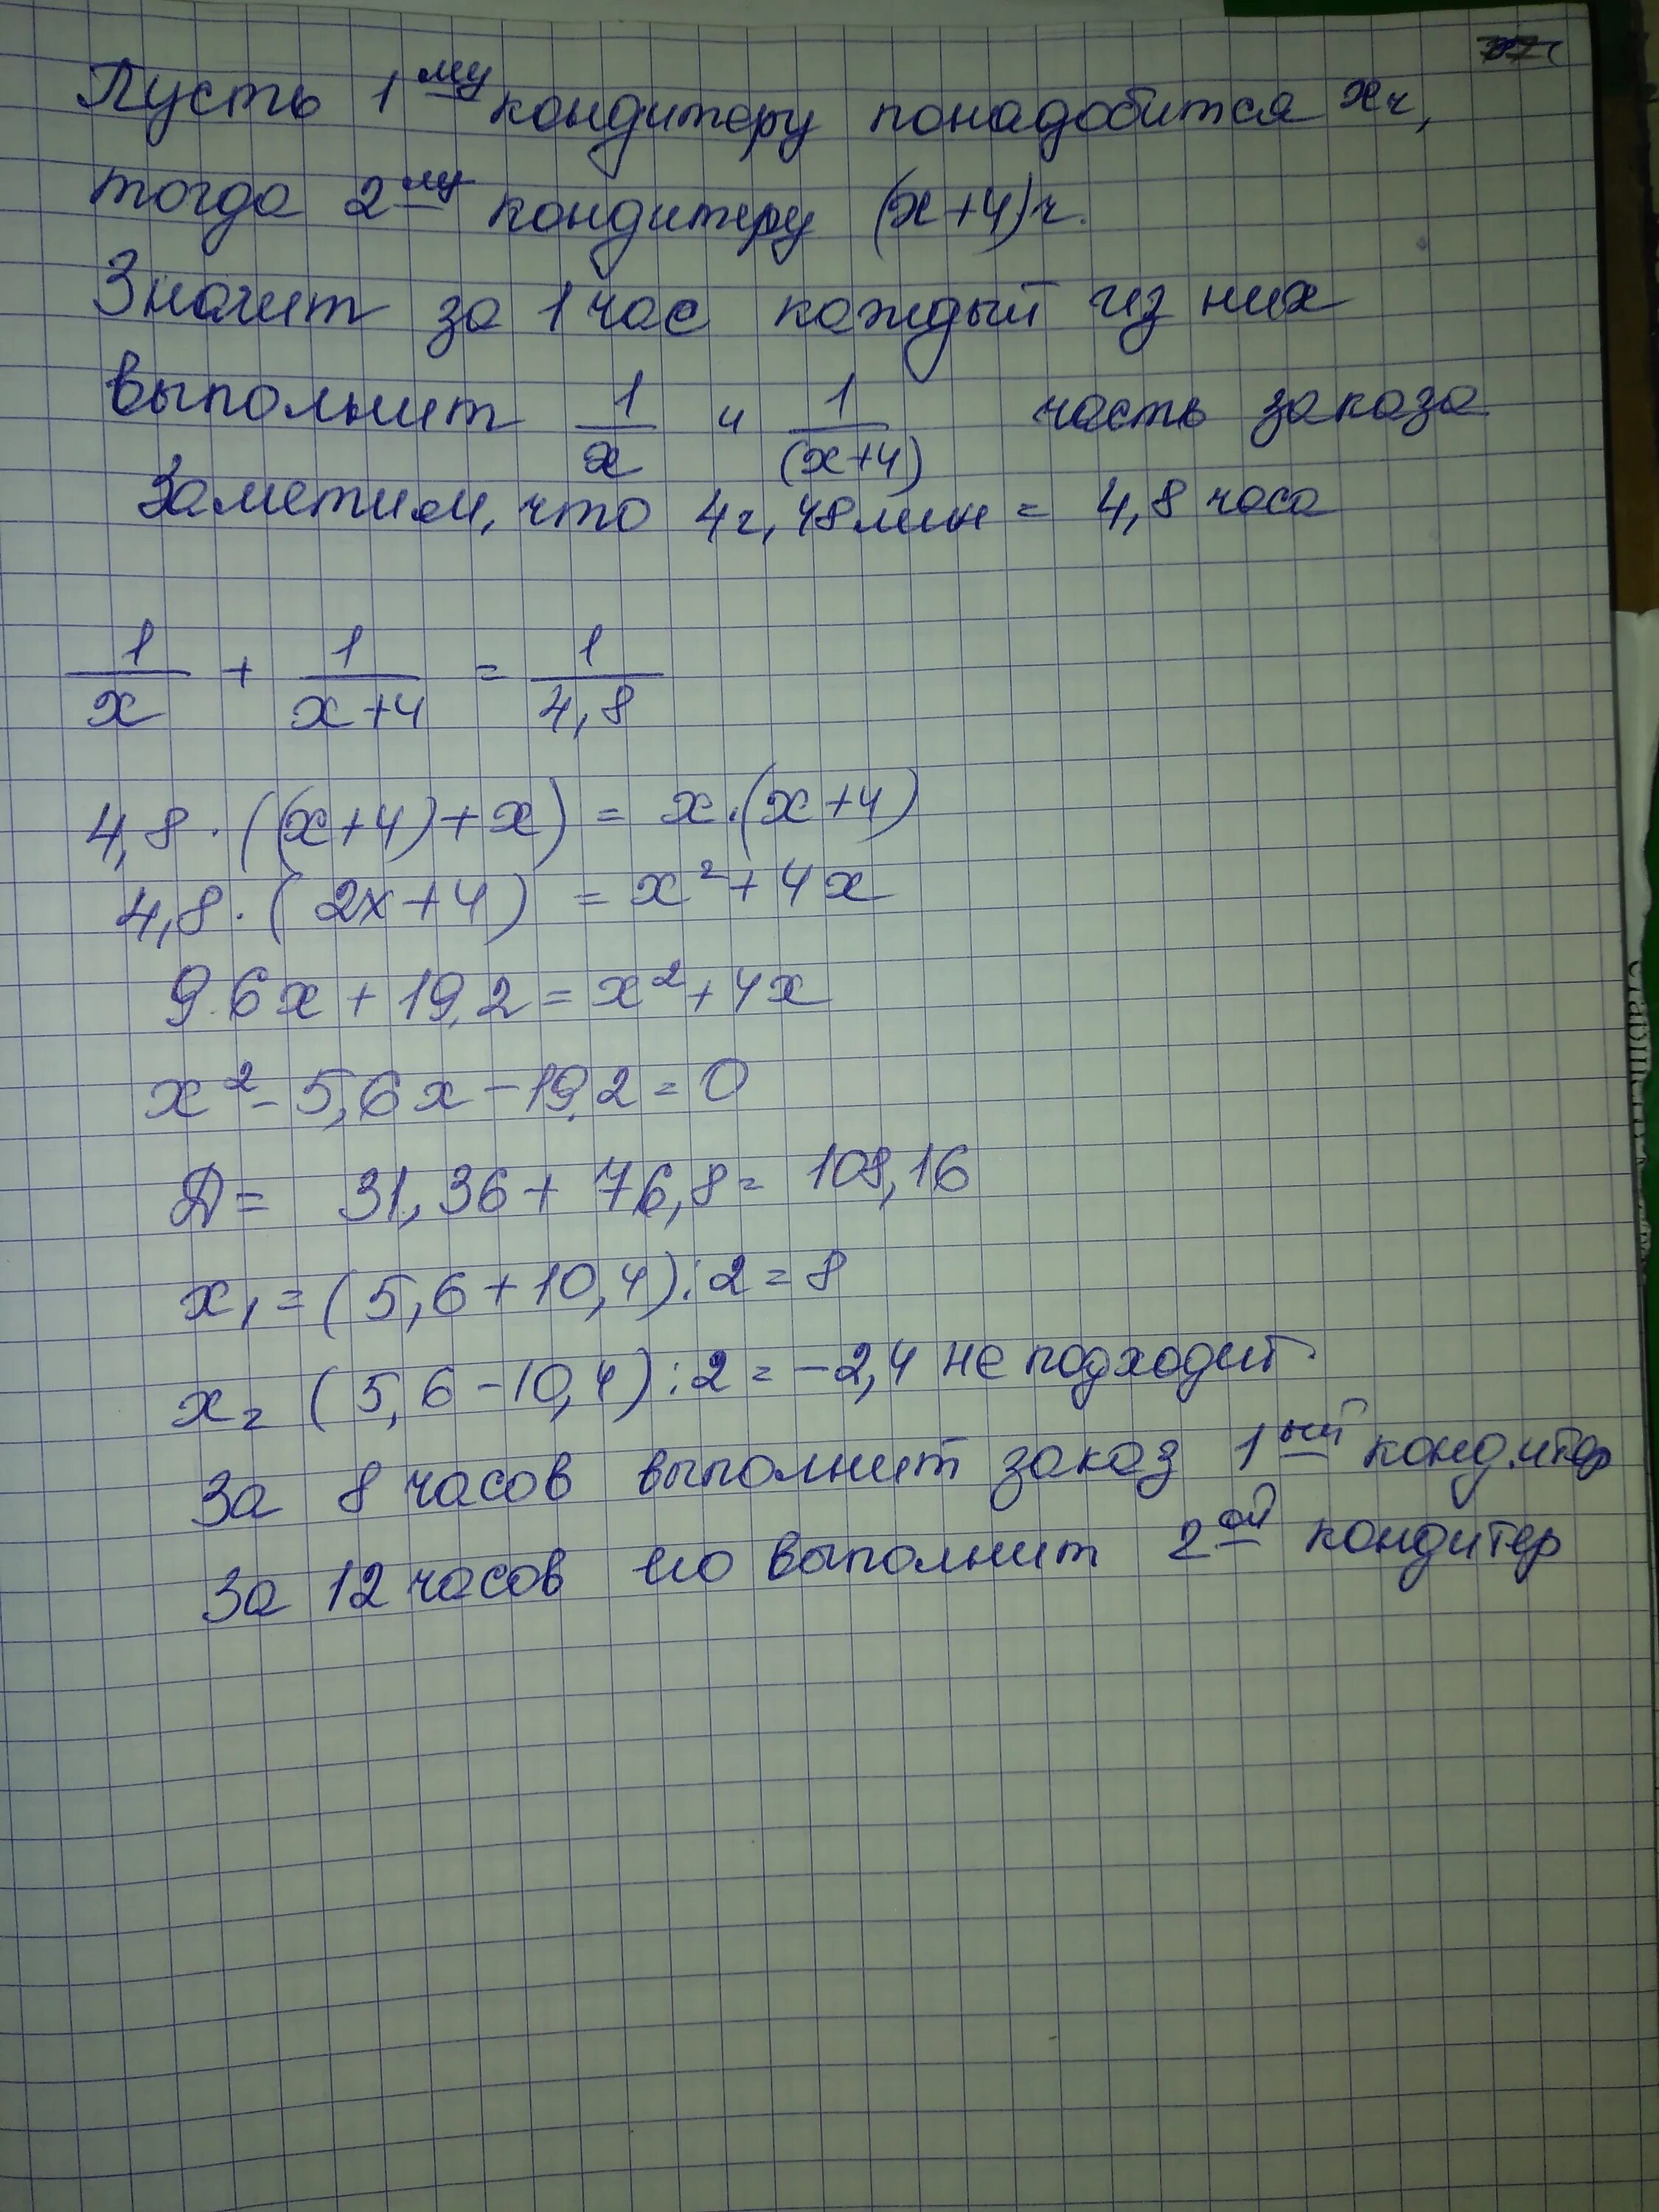 Пусть 1му кондитеру понадобится x ч,
тогда 2му кондитеру (x+4) ч.
Значит за 1 час каждый из них
выполнит 1/x и 1/(x+4) часть заказа
Заметим, что 4ч, 48 мин = 4,8 часа
1/x + 1/x+4 = 1/4,8
4,8·((x+4)+x) = x·(x+4)
4,8·(2x+4) = x²+4x
9.6x+19,2=x²+4x
x²-5,6x-19,2=0
Д= 31,36+76,8= 108,16
x₁=(5,6+10,4):2=8
x₂ (5,6-10,4):2=-2,4 не подходит.
За 8 часов выполнит заказ 1ый кондитер
За 12 часов его выполнит 2ой кондитер